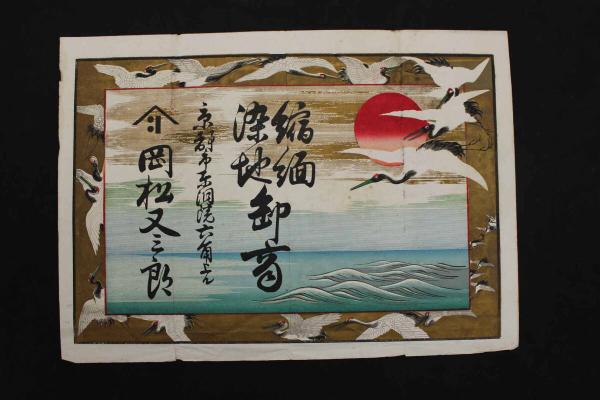 縮緬
染地卸商
京都市東洞院六角上ル
岡松又三郎